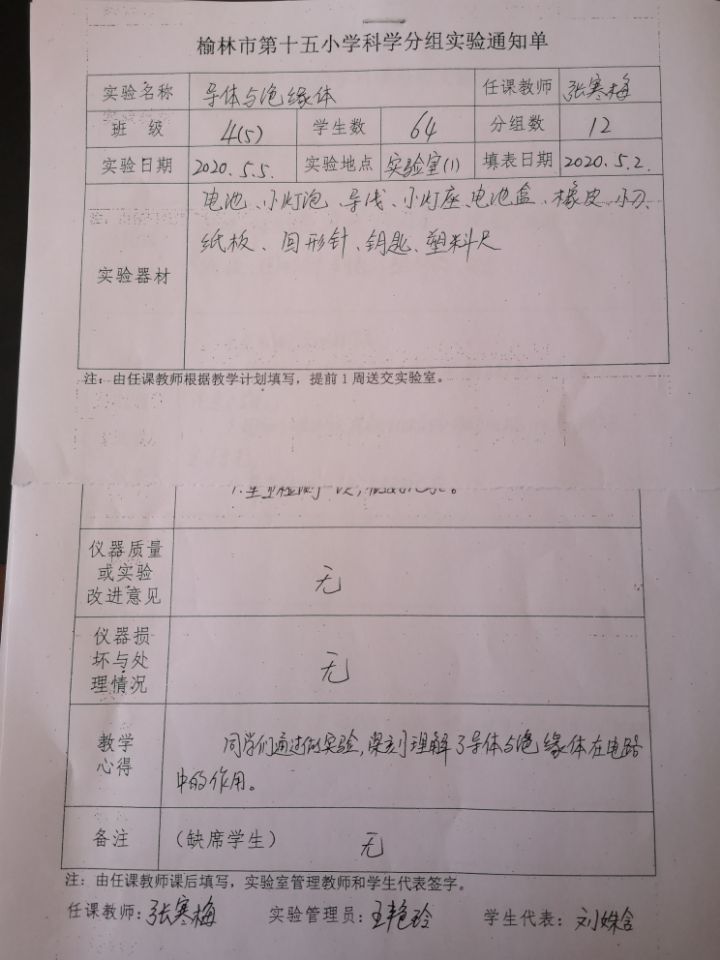 榆林市第十五小学科学分组实验通知单
实验名称 导体与绝缘体 任课教师 张寒梅
班 级 4(5) 学生数 64 分组数 12
实验日期 2020.5.5. 实验地点 实验室(1) 填表日期 2020.5.2.
电池、小灯泡、导线、小灯座、电池盒、橡皮、小刀、
纸板、回形针、钥匙、塑料尺
实验器材
注：由任课教师根据教学计划填写，提前1周送交实验室。
仪器质量
或实验
改进意见
无
仪器损
坏与处
理情况
无
教学
心得
同学们通过做实验，深刻理解了导体与绝缘体在电路
中的作用。
备注 (缺席学生) 无
注：由任课教师课后填写，实验室管理教师和学生代表签字。
任课教师：张寒梅 实验管理员：王艳玲 学生代表：刘姝含